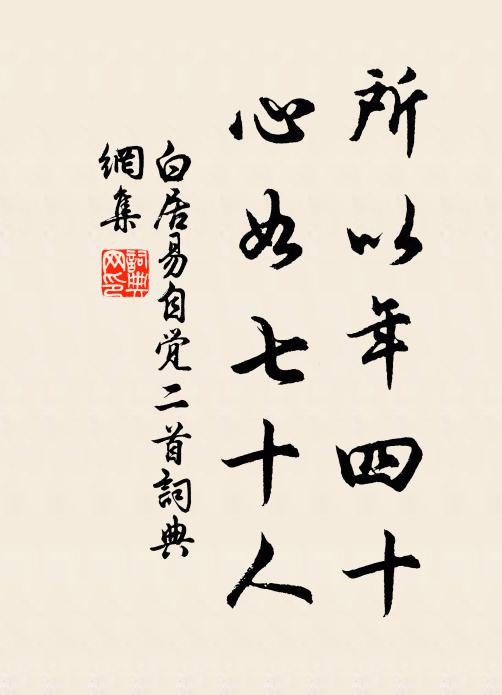 所以年四十
心如七十人
白居易自觉二首詞典
網集
詞典网印